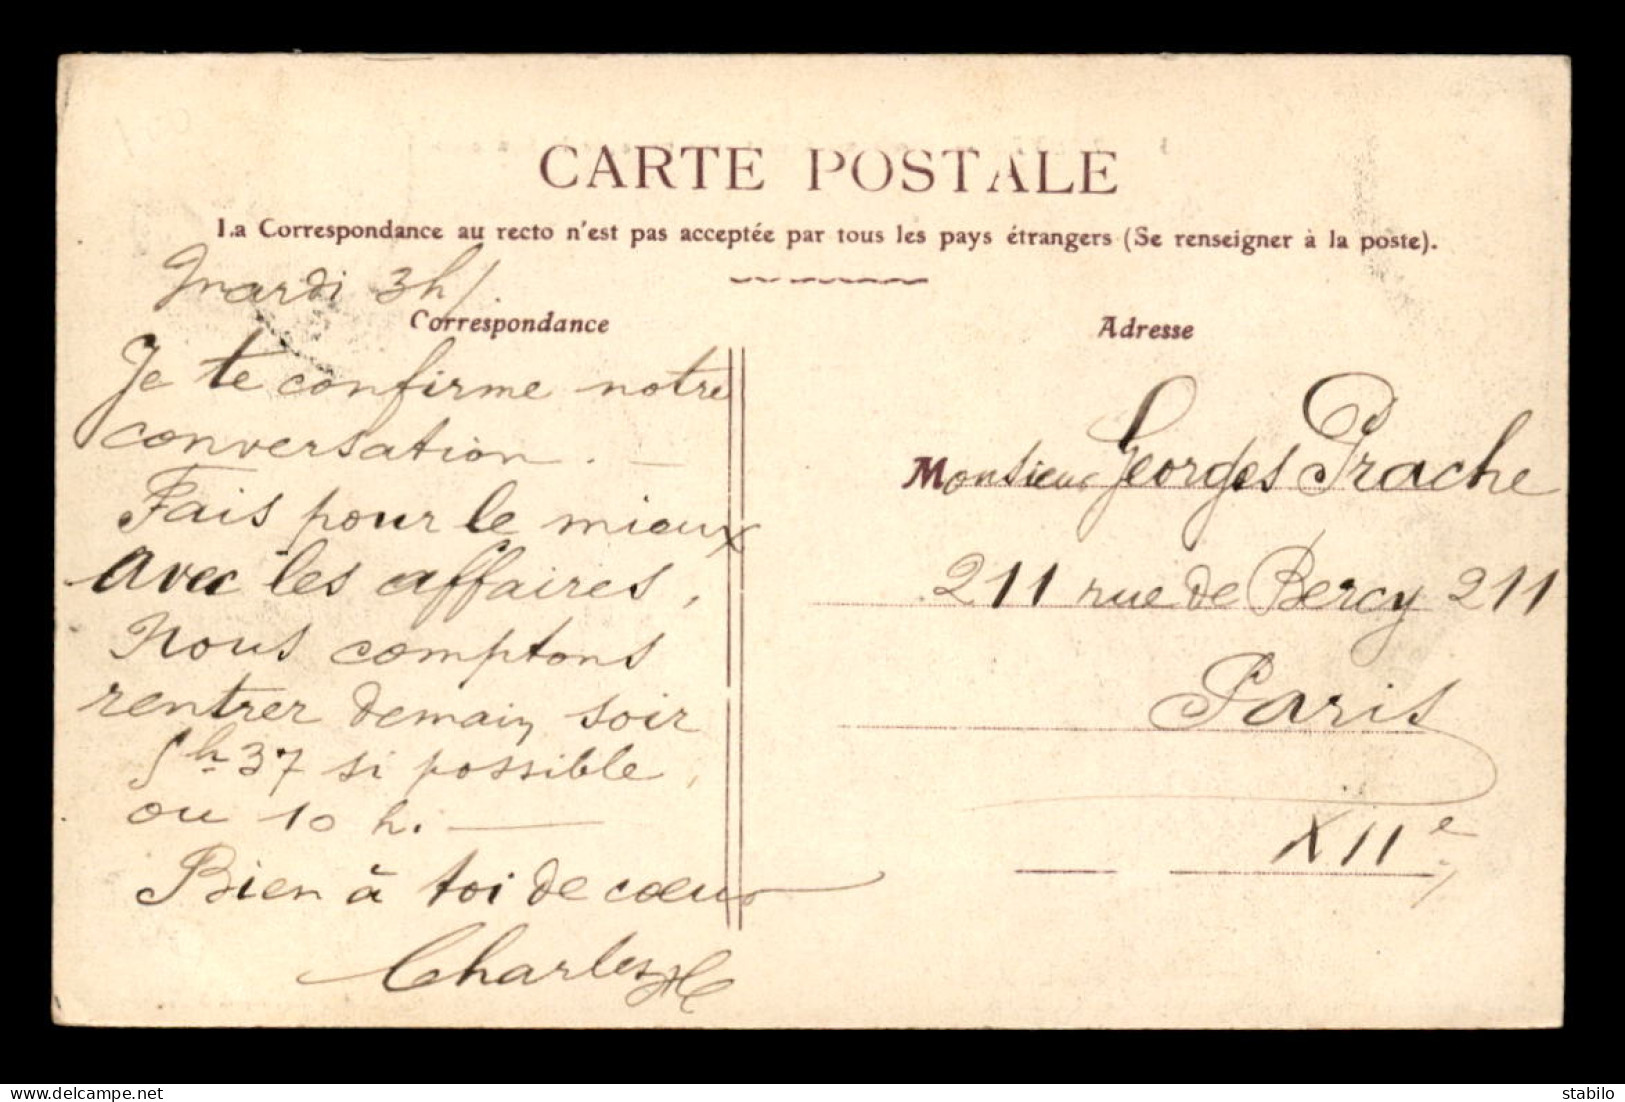 CARTE POSTALE
La Correspondance au recto n'est pas acceptée par tous les pays étrangers (Se renseigner à la poste).
Mardi 3h/.
Correspondance
Je te confirme notre
conversation. —
Fais pour le mieux
avec les affaires,
Nous comptons
rentrer demain soir
5h 37 si possible,
ou 10 h. —
Bien à toi de cœur
Charles
Adresse
Monsieur Georges Prache
211 rue de Bercy 211
Paris
XIIe
stabilo